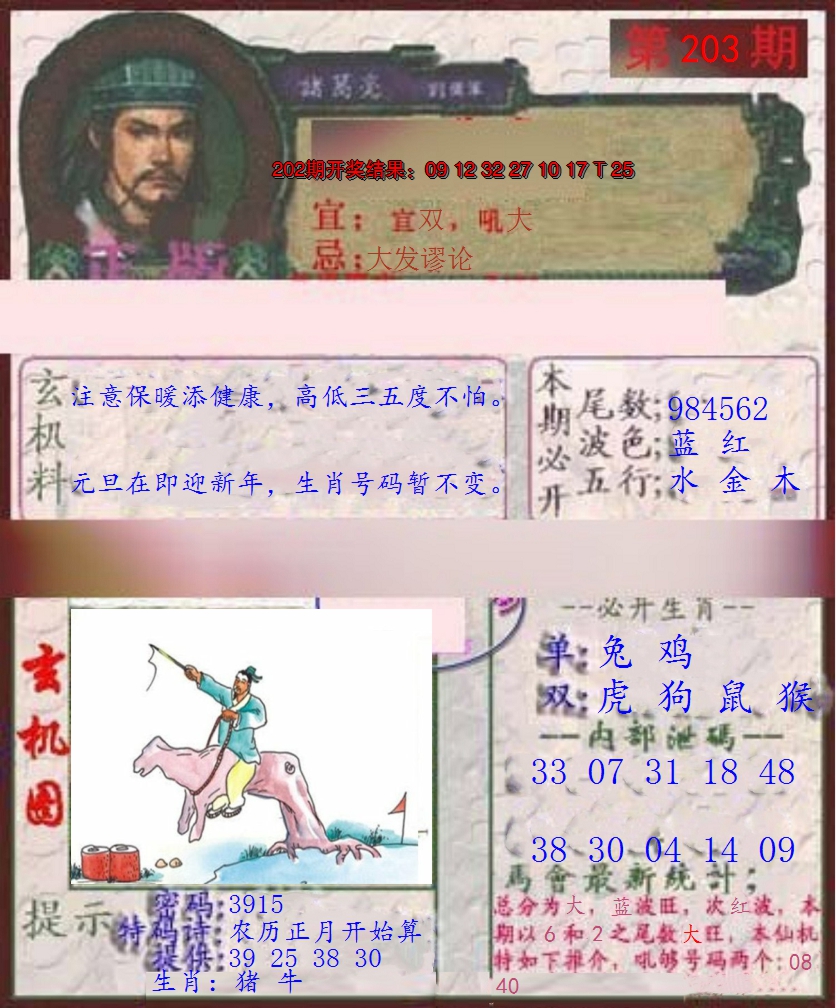 第 203 期
諸葛亮
202期开奖结果：09 12 32 27 10 17 T 25
宜：宜双，吼大
忌：大发谬论
正版
玄机料
注意保暖添健康，高低三五度不怕。
元旦在即迎新年，生肖号码暂不变。
本期必开
尾数；984562
波色；蓝 红
五行；水 金 木
玄机图
--必开生肖--
单：兔 鸡
双：虎 狗 鼠 猴
—内部泄碼—
33 07 31 18 48
38 30 04 14 09
馬會最新統計；
总分为大，蓝波旺，次红波，本
期以6和2之尾数大旺，本仙机
特如下推介，吼够号码两个：08
40
提示
密码：3915
特码诗：农历正月开始算
提供：39 25 38 30
生肖：猪 牛